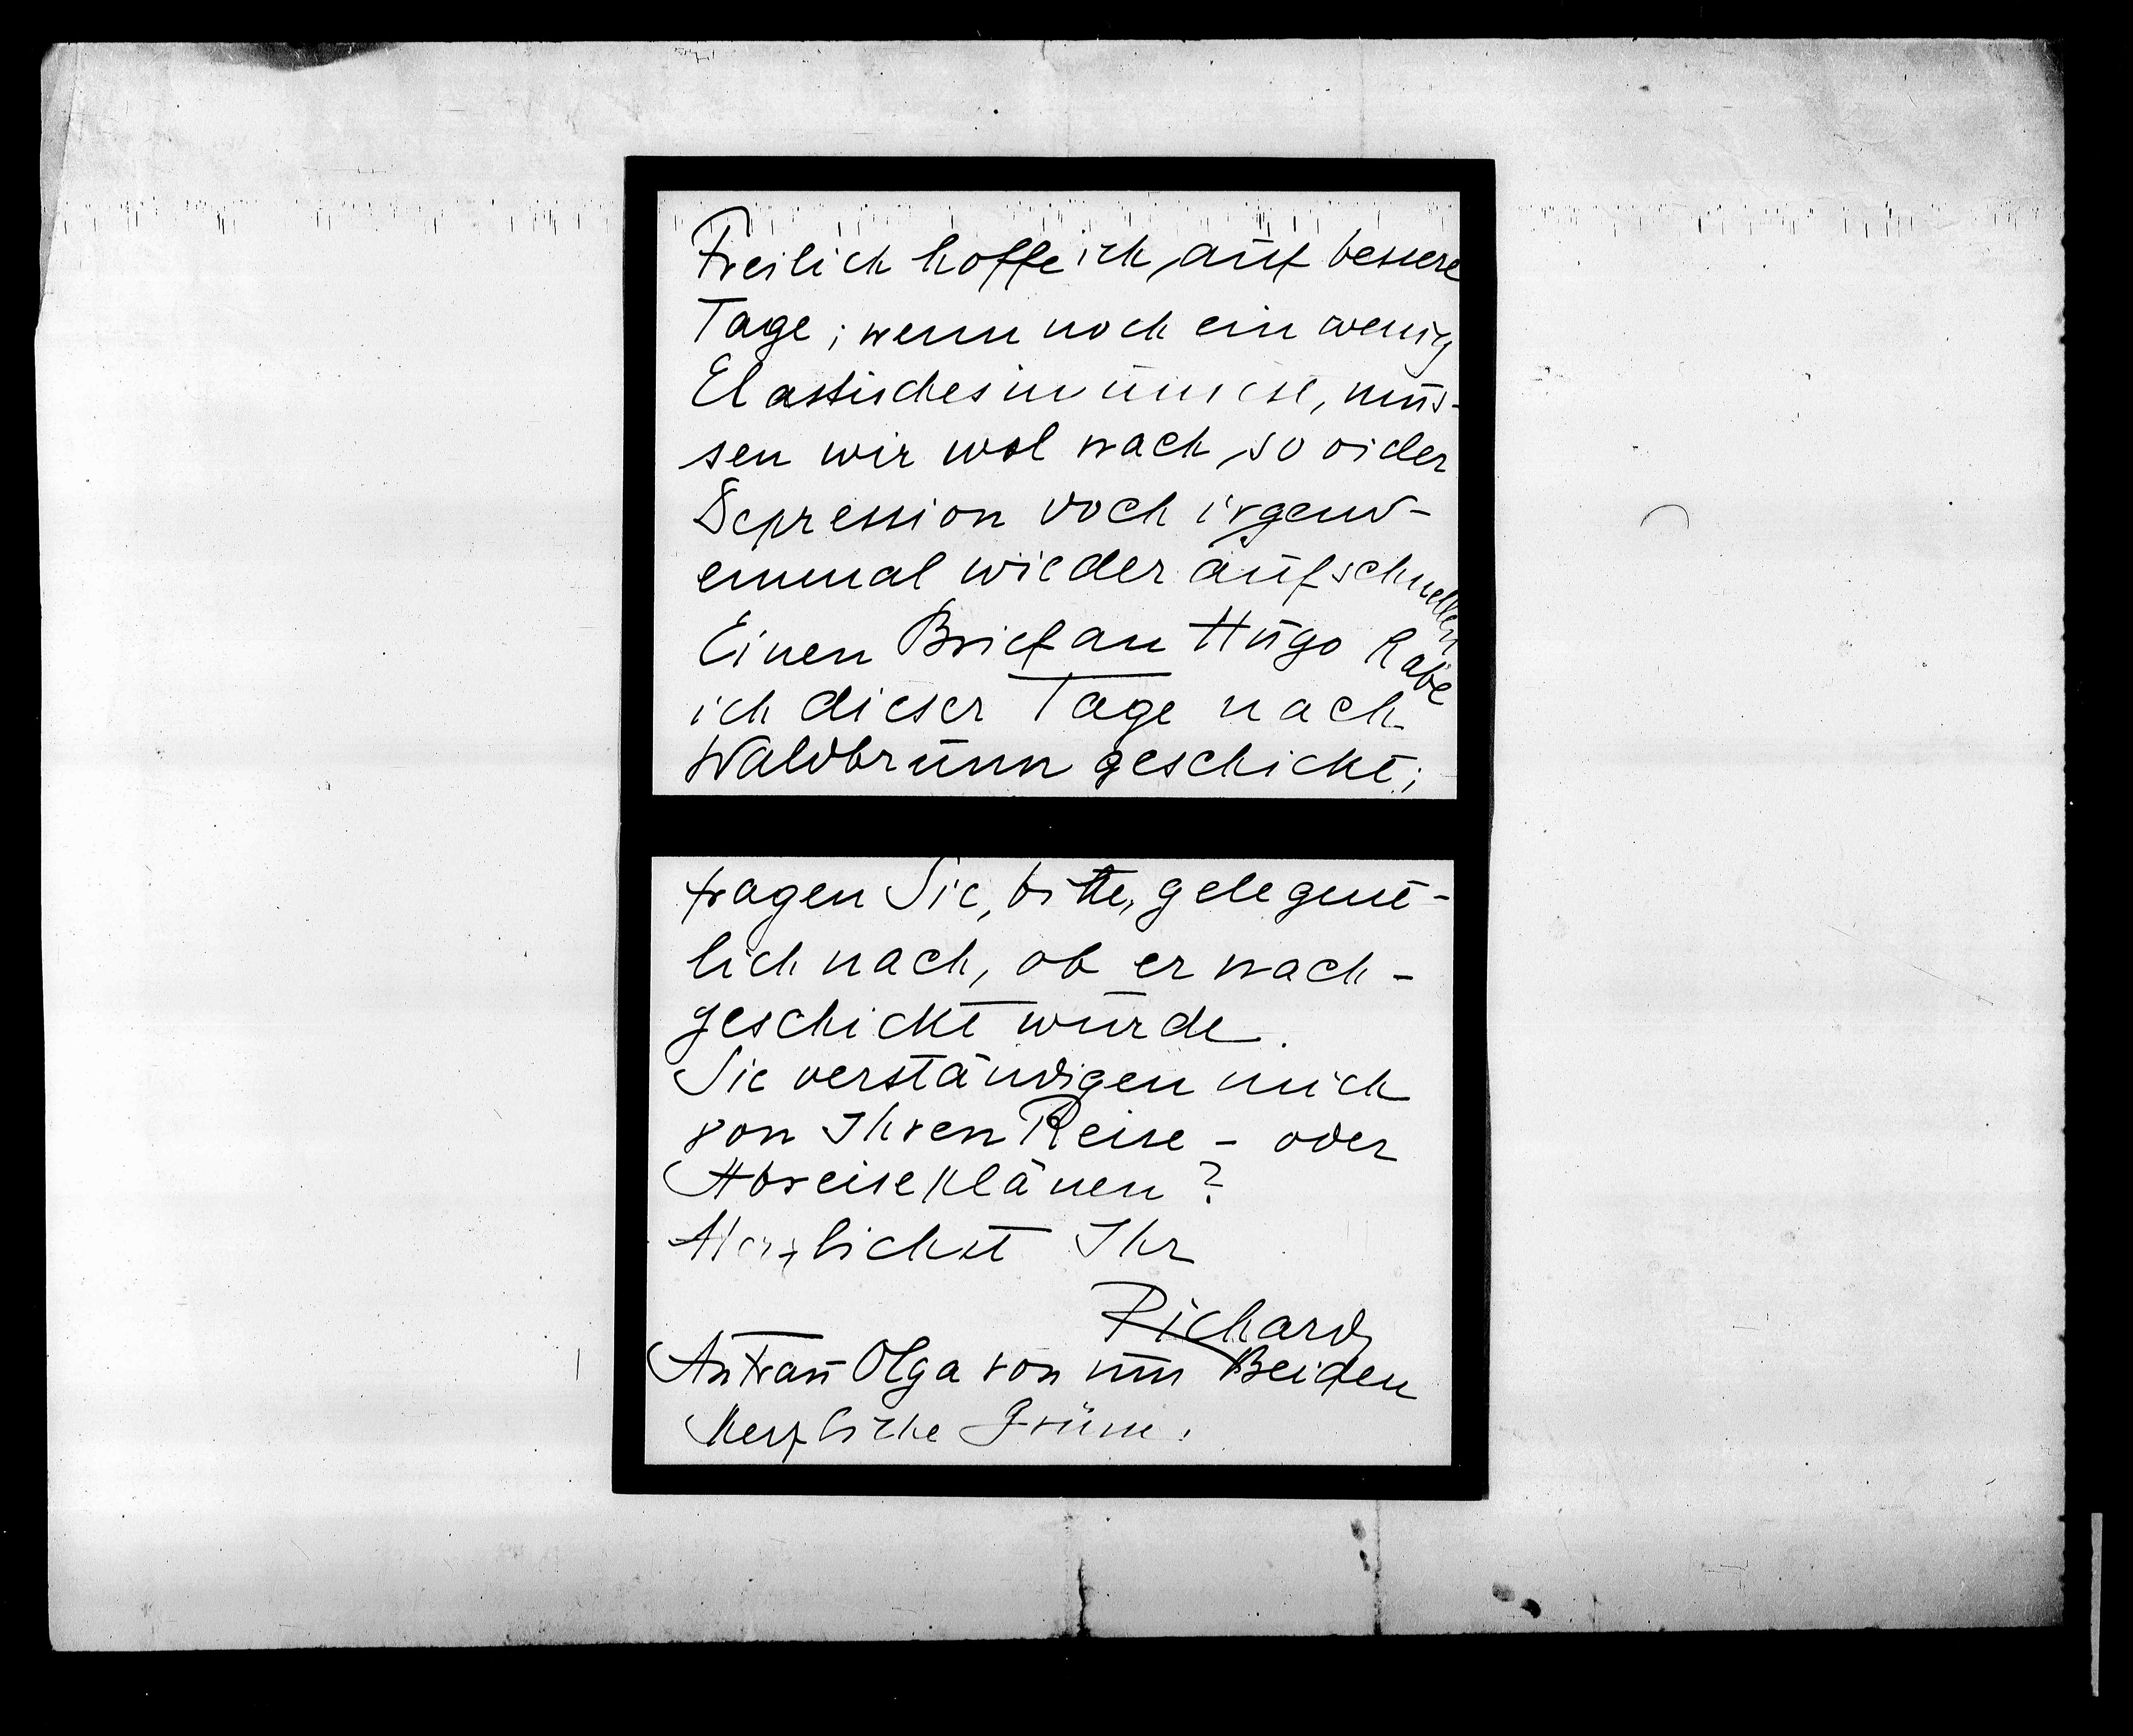 Freilich hoffe ich auf bessere
Tage; wenn noch ein wenig
Elastisches in uns ist, müs-
sen wir wol nach so vieler
Depression doch irgend-
einmal wieder aufschnellen
Einen Brief an Hugo habe
ich dieser Tage nach
Waldbrunn geschickt;
fragen Sie, bitte, gelegent-
lich nach, ob er nach-
geschickt wurde.
Sie verständigen mich
von Ihren Reise - oder
Abreiseplänen?
Herzlichst Ihr
Richard
An Frau Olga von uns Beiden
herzliche Grüsse.